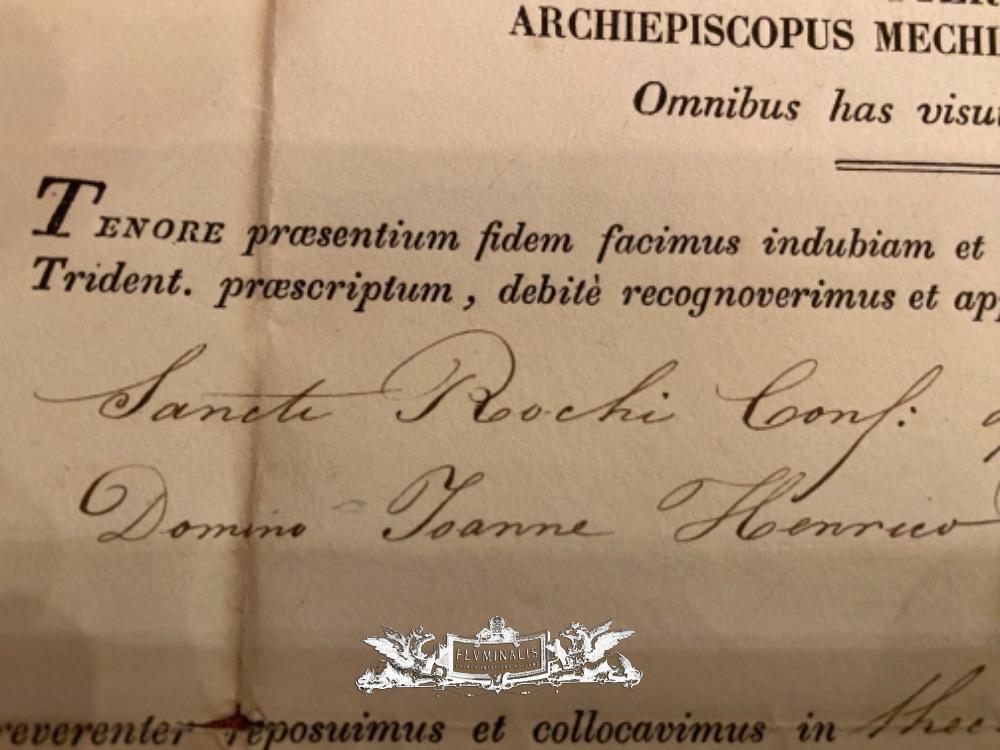 ARCHIEPISCOPUS MECHL
Omnibus has visu
TENORE præsentium fidem facimus indubiam et
Trident. præscriptum, debitè recognoverimus et app
Sancti Rochi Conf:
Domino Joanne Henrico
FLVMINALIS
reverenter reposuimus et collocavimus in thec